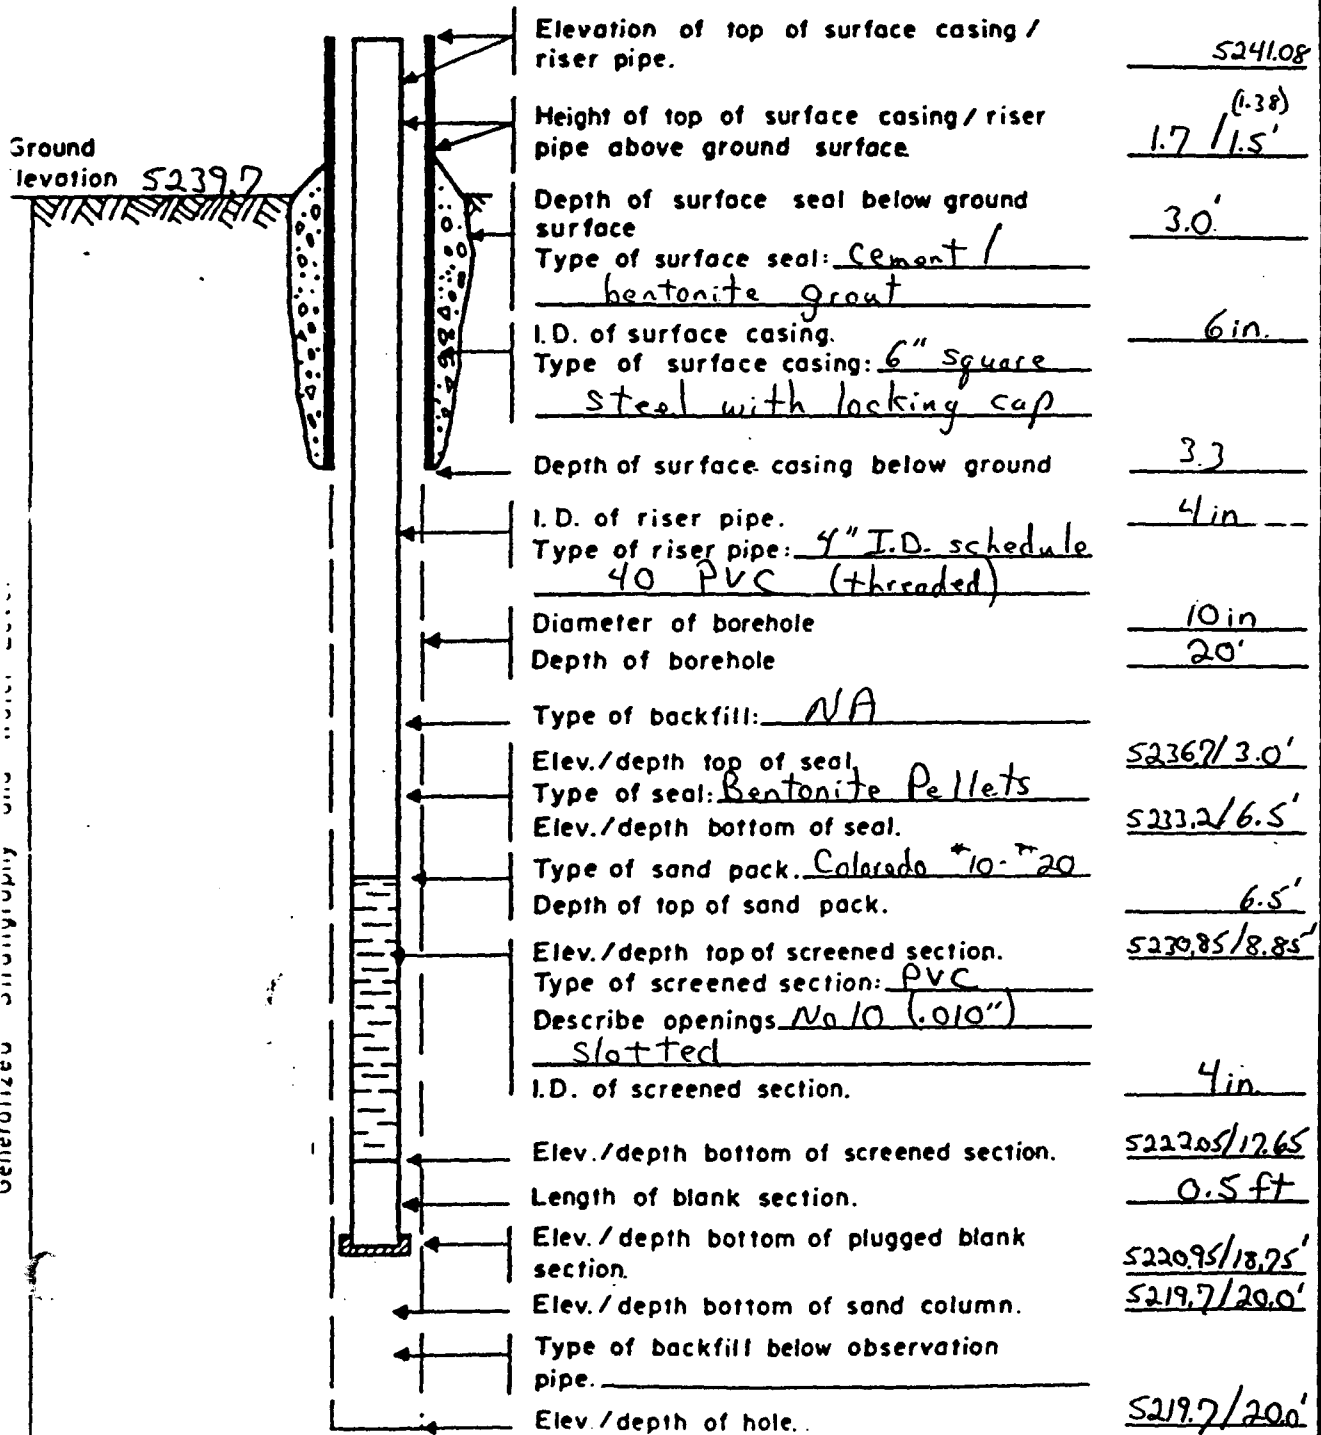 Elevation of top of surface casing /
riser pipe. 5241.08
(1.38)
Height of top of surface casing / riser
pipe above ground surface 1.7 / 1.5'
Ground
levation 5239.7
Depth of surface seal below ground
surface 3.0'
Type of surface seal: Cement /
bentonite grout
I.D. of surface casing. 6 in.
Type of surface casing: 6" square
steel with locking cap
Depth of surface casing below ground 3.3
I.D. of riser pipe. 4 in
Type of riser pipe: 4" I.D. schedule
40 PVC (threaded)
Diameter of borehole 10 in
Depth of borehole 20'
Type of backfill: NA
Elev./depth top of seal. 5236.7/3.0'
Type of seal: Bentonite Pellets
Elev./depth bottom of seal. 5233.2/6.5'
Type of sand pack. Colorado #10-#20
Depth of top of sand pack. 6.5'
Elev./depth top of screened section. 5230.85/8.85'
Type of screened section: PVC
Describe openings No 10 (.010")
Slotted
I.D. of screened section. 4 in.
Elev./depth bottom of screened section. 5222.05/17.65
Length of blank section. 0.5 ft
Elev./depth bottom of plugged blank
section. 5220.95/18.75'
Elev./depth bottom of sand column. 5219.7/20.0'
Type of backfill below observation
pipe.
Elev./depth of hole. 5219.7/20.0'
Generalized Stratigraphy and Water Level